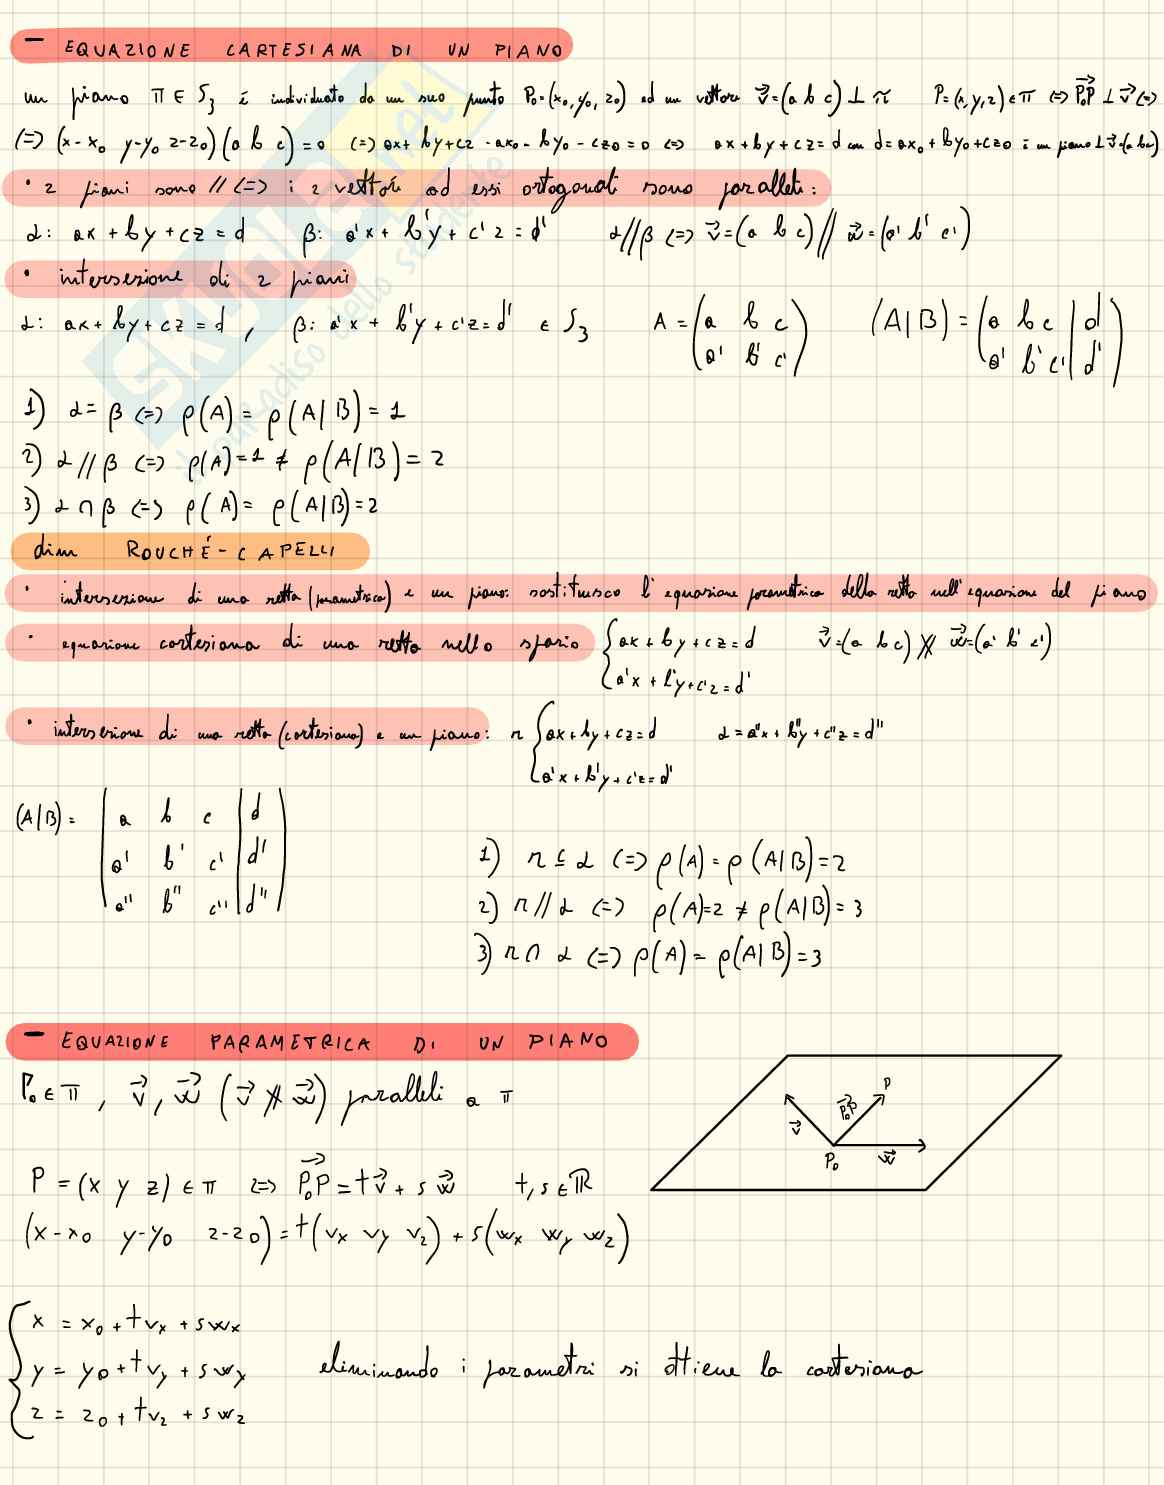 - EQUAZIONE CARTESIANA DI UN PIANO
un piano π ∈ S₃ è individuato da un suo punto P₀=(x₀,y₀,z₀) ed un vettore v⃗=(a b c) ⊥ π P=(x,y,z) ∈ π <=> P₀P⃗ ⊥ v⃗ <=>
<=> (x-x₀ y-y₀ z-z₀)(a b c)=0 <=> ax+by+cz-ax₀-by₀-cz₀=0 <=> ax+by+cz=d con d=ax₀+by₀+cz₀ è un piano ⊥ v⃗=(a b c)
• 2 piani sono // <=> i 2 vettori ad essi ortogonali sono paralleli:
α: ax+by+cz=d β: a'x+b'y+c'z=d' α//β <=> v⃗=(a b c) // w⃗=(a' b' c')
• intersezione di 2 piani
α: ax+by+cz=d , β: a'x+b'y+c'z=d' ∈ S₃ A = (a b c (A|B) = (a b c | d
a' b' c') a' b' c' | d')
1) α=β <=> ρ(A)=ρ(A|B)=1
2) α//β <=> ρ(A)=1 ≠ ρ(A|B)=2
3) α∩β <=> ρ(A)=ρ(A|B)=2
dim ROUCHÉ-CAPELLI
• intersezione di una retta (parametrica) e un piano: sostituisco l'equazione parametrica della retta nell'equazione del piano
• equazione cartesiana di una retta nello spazio { ax+by+cz=d v⃗=(a b c) ∦ w⃗=(a' b' c')
a'x+b'y+c'z=d'
• intersezione di una retta (cartesiana) e un piano: r { ax+by+cz=d α=a"x+b"y+c"z=d"
a'x+b'y+c'z=d'
(A|B)= (a b c | d
a' b' c' | d'
a" b" c" | d")
1) r ⊆ α <=> ρ(A)=ρ(A|B)=2
2) r//α <=> ρ(A)=2 ≠ ρ(A|B)=3
3) r∩α <=> ρ(A)=ρ(A|B)=3
- EQUAZIONE PARAMETRICA DI UN PIANO
P₀ ∈ π , v⃗, w⃗ (v⃗ ∦ w⃗) paralleli a π
v⃗ P₀P⃗ P
P₀ w⃗
P=(x y z) ∈ π <=> P₀P⃗=tv⃗+sw⃗ t,s ∈ ℝ
(x-x₀ y-y₀ z-z₀)=t(vx vy vz)+s(wx wy wz)
{ x = x₀+tvx+swx
y = y₀+tvy+swy eliminando i parametri si ottiene la cartesiana
z = z₀+tvz+swz